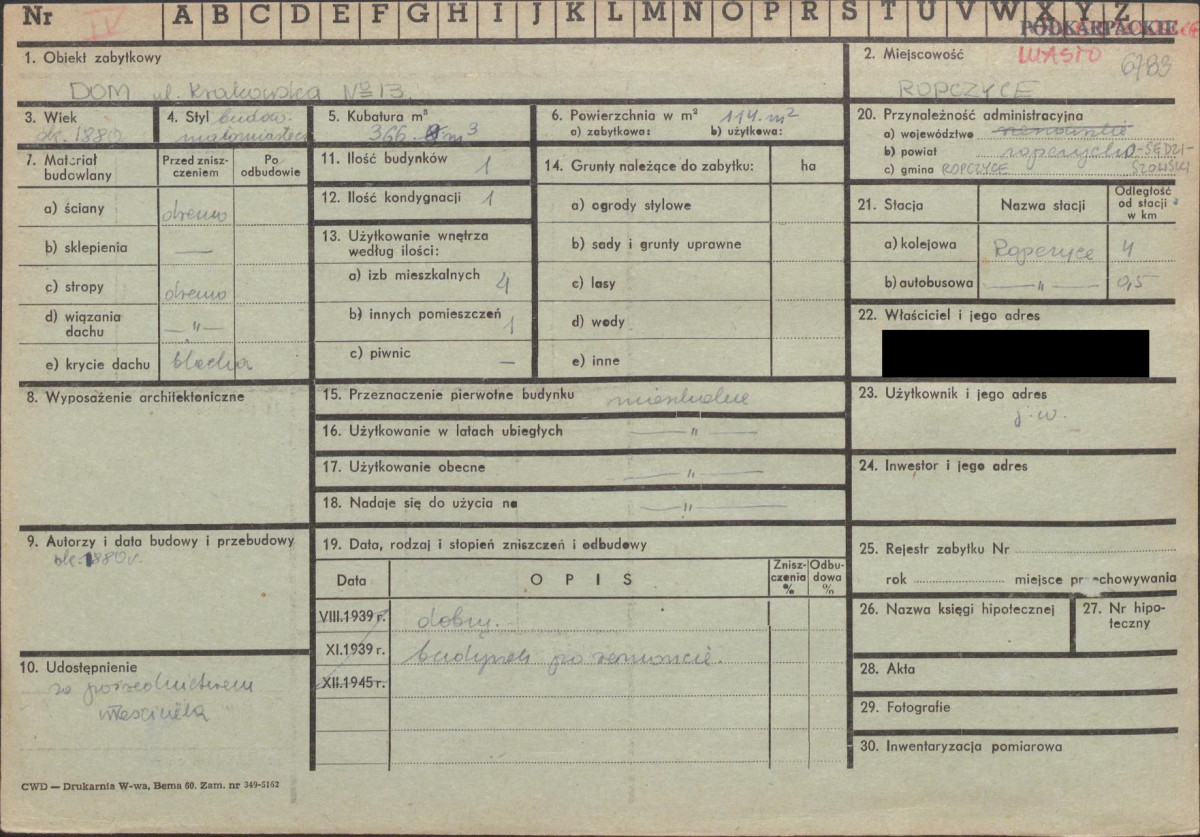 Nr IV A B C D E F G H I J K L M N O P R S T U V W X Y Z
PODKARPACKIE
1. Obiekt zabytkowy
DOM ul. Krakowska № 13
2. Miejscowość MIASTO 6783
ROPCZYCE
3. Wiek
ok. 1880
4. Styl budow.
małomiastecz
5. Kubatura m³
366 m³
6. Powierzchnia w m² 114 m²
a) zabytkowa: b) użytkowa:
20. Przynależność administracyjna
a) województwo rzeszowskie
b) powiat ropczycko-SĘDZI-
SZOWSKI
c) gmina ROPCZYCE
7. Materiał budowlany
Przed zniszczeniem
Po odbudowie
a) ściany drewno
b) sklepienia —
c) stropy drewno
d) wiązania dachu — " —
e) krycie dachu blacha
11. Ilość budynków 1
12. Ilość kondygnacji 1
13. Użytkowanie wnętrza
według ilości:
a) izb mieszkalnych 4
b) innych pomieszczeń 1
c) piwnic —
14. Grunty należące do zabytku: ha
a) ogrody stylowe
b) sady i grunty uprawne
c) lasy
d) wody
e) inne
21. Stacja Nazwa stacji Odległość
od stacji
w km
a) kolejowa Ropczyce 4
b) autobusowa — " — 0,5
22. Właściciel i jego adres
8. Wyposażenie architektoniczne
15. Przeznaczenie pierwotne budynku mieszkalne
16. Użytkowanie w latach ubiegłych — " —
17. Użytkowanie obecne — " —
18. Nadaje się do użycia na — " —
23. Użytkownik i jego adres
j.w.
24. Inwestor i jego adres
9. Autorzy i data budowy i przebudowy
ok. 1880 r.
19. Data, rodzaj i stopień zniszczeń i odbudowy
Data OPIS Zniszczenia % Odbudowa %
VIII.1939 r. dobry.
XI.1939 r. budynek po remoncie.
XII.1945 r.
25. Rejestr zabytku Nr
rok miejsce przechowywania
26. Nazwa księgi hipotecznej
27. Nr hipoteczny
10. Udostępnienie
za pośrednictwem
właściciela
28. Akta
29. Fotografie
30. Inwentaryzacja pomiarowa
CWD — Drukarnia W-wa, Bema 60. Zam. nr 349-5162